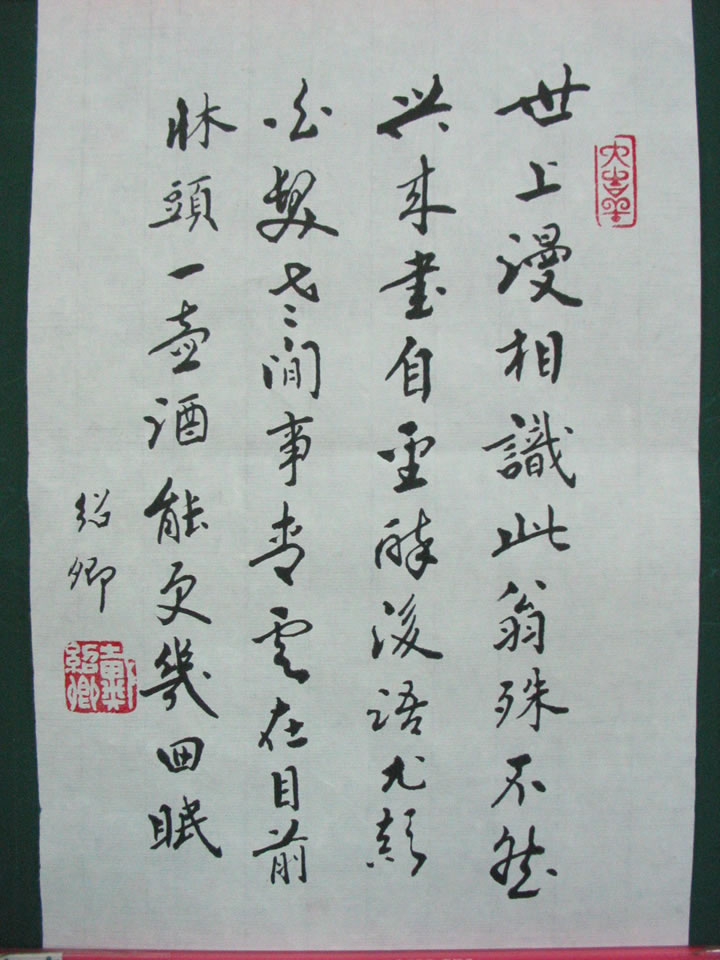 大吉羊
世上漫相識此翁殊不然
興來書自聖醉後語尤顛
白髮老閒事青雲在目前
牀頭一壺酒能更幾回眠
紹卿
戴紹卿